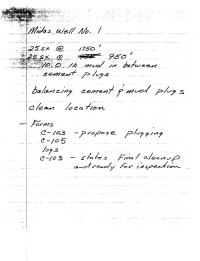 Midas Well No. 1
25 sx @ 1750'
25 sx @ 950'
10.0 lb mud in between
cement plugs
balancing cement & mud plugs
clean location
Forms
C-103 - propose plugging
C-105
logs
C-103 - states Final cleanup
and ready for inspection